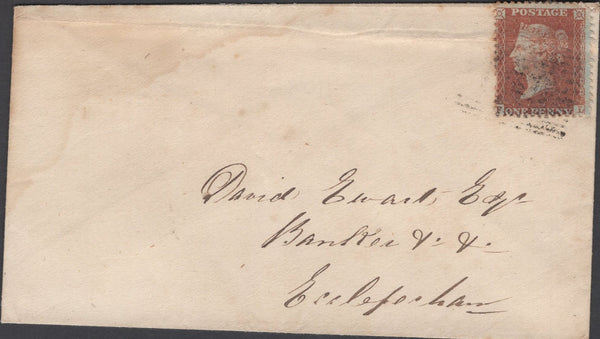 POSTAGE
ONE PENNY
David Ewart Esqr
Banker &. &.
Ecclefechan